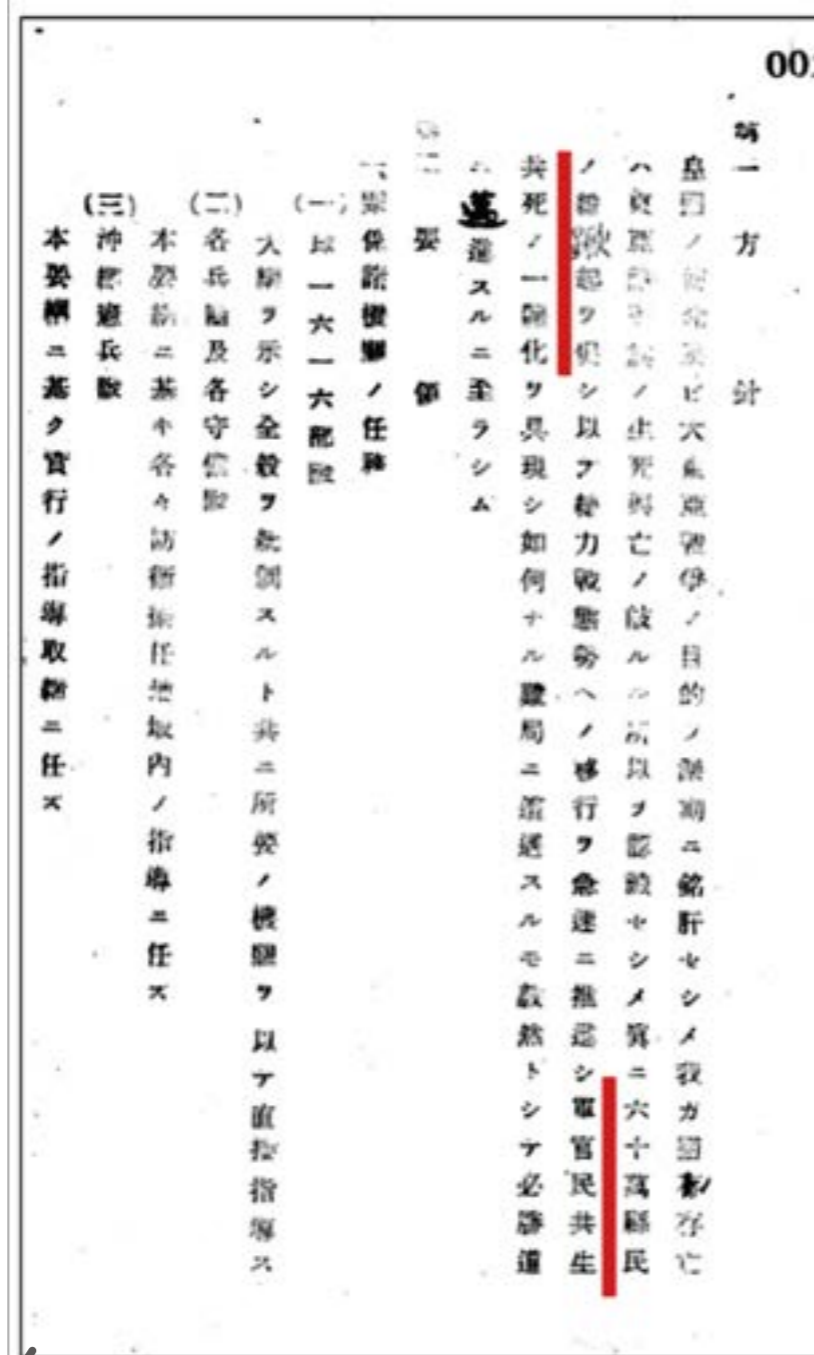 001
第一 方 針
皇国ノ使命及ビ大東亜戦争ノ目的ノ深刻ニ銘肝セシメ我ガ国ノ存亡
ハ東亜諸民族ノ生死興亡ノ岐ルル所以ヲ認識セシメ真ニ六十萬縣民
ノ総蹶起ヲ促シ以テ総力戦態勢ヘノ移行ヲ急速ニ推進シ軍官民共生
共死ノ一体化ヲ具現シ如何ナル難局ニ遭遇スルモ毅然トシテ必勝道
ニ邁進スルニ至ラシム
第二 要 領
一、関係諸機関ノ任務
(一)球一六一六部隊
大綱ヲ示シ全般ヲ統制スルト共ニ所要ノ機関ヲ以テ直接指導ス
(二)各兵団及各守備隊
本要綱ニ基キ各々防衛担任地域内ノ指導ニ任ズ
(三)沖縄憲兵隊
本要綱ニ基ク實行ノ指導取締ニ任ズ